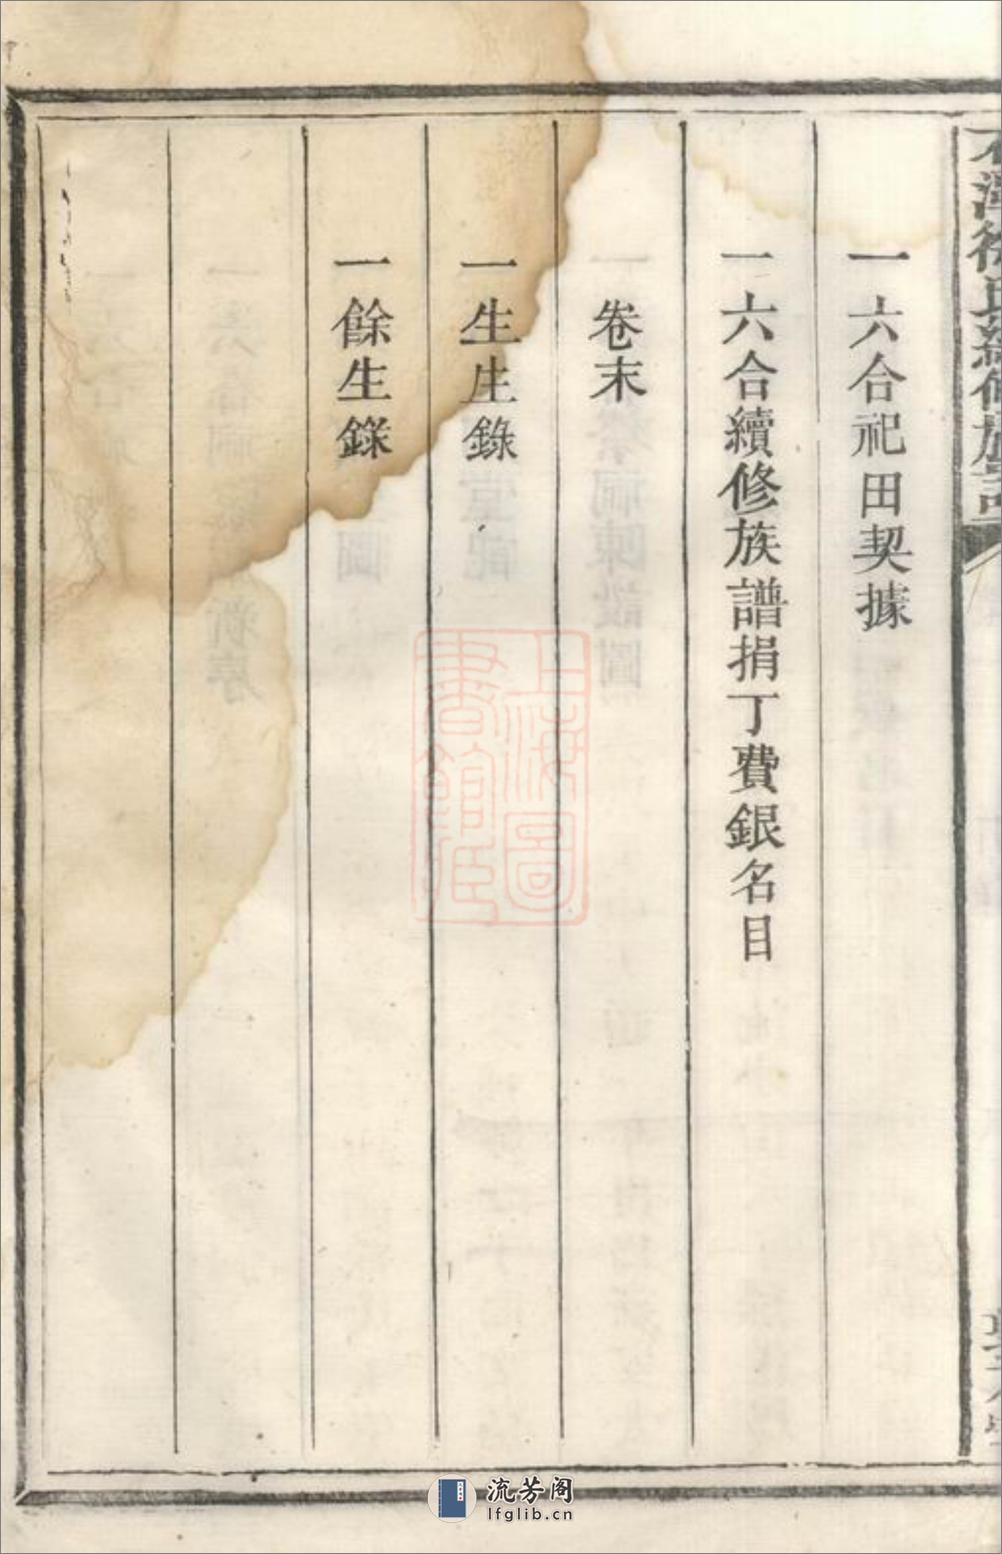 一六合祀田契據
一六合續修族譜捐丁費銀名目
卷末
一生生錄
一餘生錄
上海圖書館藏
流芳阁
lfglib.cn